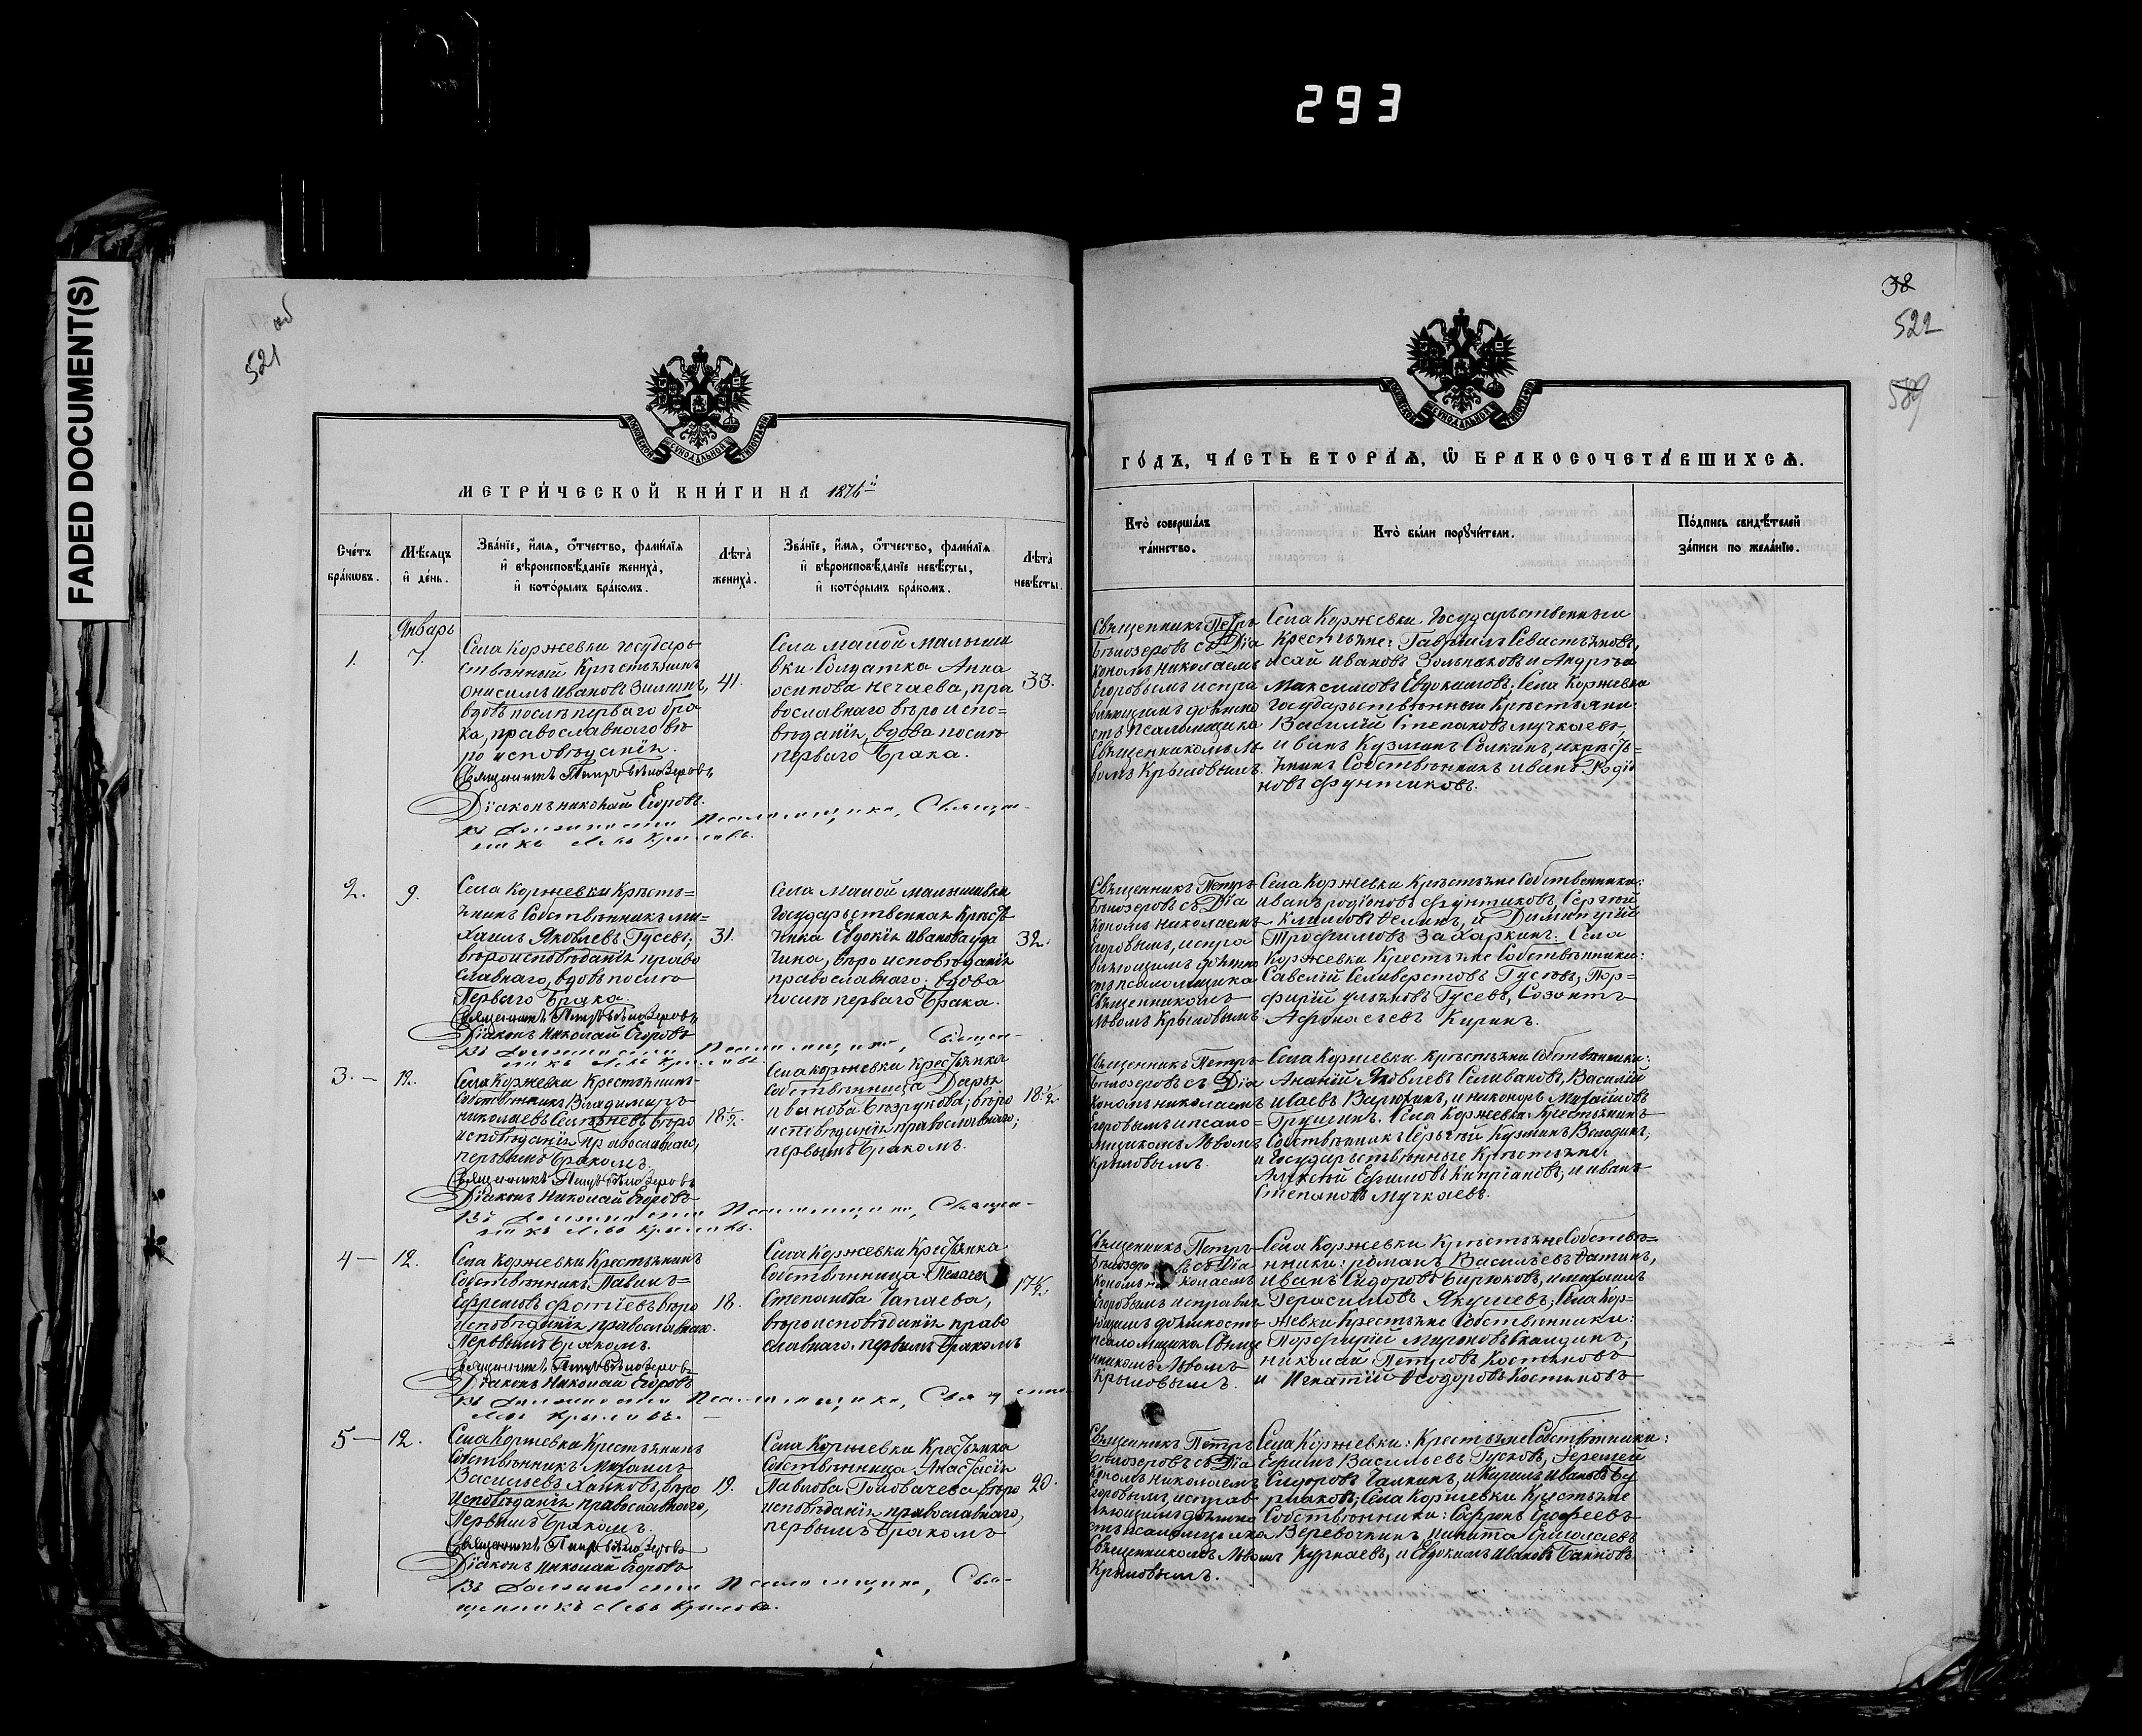 293
FADED DOCUMENT(S)
521 об
МЕТРИ́ЧЕСКОЙ КНИ́ГИ НА 1876й
Сче́тъ бра́кѡвъ.
Мѣ́сяцъ и҆ де́нь.
Зва́нїе, и҆́мѧ, ѻ҆́тчество, фами́лїѧ
и҆ вѣроисповѣ́данїе жениха̀,
и҆ кото́рымъ бра́комъ.
Лѣ́та жениха̀.
Зва́нїе, и҆́мѧ, ѻ҆́тчество, фами́лїѧ
и҆ вѣроисповѣ́данїе невѣ́сты,
и҆ кото́рымъ бра́комъ.
Лѣ́та невѣ́сты.
Январь
1.
7.
Села Коржевки Государь
ственный Крѣстьянинъ
Онисимъ Ивановъ Зиминъ,
вдовъ послѣ перваго бра
ка, православнаго вѣ
ро исповѣданія.
41.
Села малой малыши
вки Солдатка Анна
осипова нечаева, пра
вославнаго вѣро испо=
вѣданія, вдова послѣ
перваго брака.
33.
Священникъ Петръ Бѣлозеровъ
Дїаконъ николай Егоровъ.
въ должности Псаломщика, Священ-
никъ Левъ Крыловъ.
2.
9.
Села Коржевки Крѣсть=
янинъ Собственникъ ми=
хаилъ Яковлевъ Гусевъ;
вѣроисповѣданія право
славнаго, вдовъ послѣ
Перваго брака.
31.
Села малой малышивки
Государьственная Крѣсть
янка Евдокія Иванова
вѣро исповѣданія
православнаго; вдова
послѣ перваго брака.
32.
Священникъ Петръ Бѣлозеровъ
Дїаконъ Николай Егоровъ
въ должности Псаломщика, Священ-
никъ Левъ Крыловъ
3. —
12.
Села Коржевки Крестьянинъ
Собственникъ Владимиръ
николаевъ вѣро
исповѣданія Православнаго,
первымъ бракомъ
18½.
Села коржевки Крестьянка
Собственница Дарья
иванова Безрукова; вѣро
исповѣданія православнаго;
первымъ бракомъ.
18½.
Священникъ Петръ Бѣлозеровъ
Дїаконъ Николай Егоровъ
Въ должности Псаломщика, Священ-
никъ Левъ Крыловъ.
4 —
12.
Села Коржевки Крестьянинъ
Собственникъ Павилъ=
Ефремовъ Фотїевъ вѣро
исповѣданія православнаго.
Первымъ бракомъ.
18.
Села Коржевки Крестьянка
Собственница Пелагея
Степанова Чапаева,
вѣроисповѣданія право
славнаго. первымъ бракомъ
17½.
Священникъ Петръ Бѣлозеровъ
Дїаконъ Николай Егоровъ
въ должности Псаломщика, Священни
Левъ Крыловъ.
5 —
12.
Села Коржевки Крестьянинъ
Собственникъ Михаилъ
Васильевъ Ханковъ, вѣро
Исповѣданія православнаго,
Первымъ бракомъ
19.
Села Коржевки Крестьянка
Собственница Анастасїя
Павлова Головачева, вѣро
исповѣданія православнаго,
первымъ бракомъ
20.
Священникъ Петръ Бѣлозеровъ
Дїаконъ Николай Егоровъ
Въ должности Псаломщика, Свя-
щенникъ Левъ Крыловъ.
38
522
589
ГО́ДЪ, ЧА́СТЬ ВТОРА́Ѧ, Ѡ҆ БРАКОСОЧЕТА́ВШИХСѦ.
Кто̀ соверша́лъ та́инство.
Кто̀ бы́ли порꙋчи́тели.
По́дпись свидѣ́телей
за́писи по жела́нїю.
Священникъ Петръ
Бѣлозеровъ съ Дїа
кономъ николаемъ
Егоровымъ испра
вляющимъ должно
сть Псаломщика
Священникомъ Ль
вомъ Крыловымъ.
Села Коржевки Государственныи
Крестьяне: Гаврїилъ Севастьяновъ,
исай ивановъ Зольпаковъ и Андрѣй
Максимовъ Евдокимовъ, Села Коржевки
Государьственныи Крѣстьяни:
Василїй Степановъ мучкаевъ,
иванъ Кузминъ Солкинъ, икрѣсть=
янинъ Собственникъ иванъ Родїо
новъ фунтиковъ.
Священникъ Петръ
Бѣлозеровъ съ Дїа
кономъ николаемъ
Егоровымъ, испра
вляющимъ должно
сть псаломщика
Священникомъ
Львомъ Крыловымъ.
Села Коржевки Крѣстьяне Собственники:
иванъ родїоновъ фунтиковъ, Сергѣй
Климовъ Ѳелинъ, и Димитрїй
Трофимовъ Захаркинъ. Села
Коржевки Крестьяне Собственники:
Савелїй Селиверстовъ Гусевъ, Пор=
фирїй ульяновъ Гусевъ, Созонтъ
Афонасьевъ Киринъ.
Священникъ Петръ
Бѣлозеровъ съ Дїа
кономъ николаемъ
Егоровымъ и псало=
мщикомъ Львомъ
Крыловымъ.
Села Коржевки Крѣстьяни Собственники:
Ананїй Яковлевъ Селивановъ, Василїй
иваевъ Вирюлинъ, и никоноръ Михайловъ
Грушинъ. Села Коржевки Крестьянинъ
Собственникъ Сергѣй Кузминъ Володинъ;
и Государьственные Крѣстьяне:
Алексѣй Ефимовъ Кипрїановъ; и иванъ
Степановъ Мучкаевъ.
Священникъ Петръ
Бѣлозеровъ съ Дїа
кономъ николаемъ
Егоровымъ исправля
ющимъ должность
псаломщика Свяще
нникомъ Львомъ
Крыловымъ.
Села Коржевки Крѣстьяне Собстве=
нники: романъ Васильевъ
Иванъ Сидоровъ Бирюковъ, и михаилъ
Герасимовъ Якушевъ; Села Кор=
жевки Крестьяне Собственники:
Порфирїй Мироновъ
николай Петровъ Костяновъ
и Игнатїй Ѳеодоровъ Костяновъ
Священникъ Петръ
Бѣлозеровъ съ Дїа
кономъ николаемъ
Егоровымъ, исправ
ляющимъ должно
сть псаломщика
Священникомъ Львомъ
Крыловымъ.
Села Коржевки: Крестьяне Собственники:
Ефимъ Васильевъ Гусковъ, Ѳеремей
Сидоровъ Галкинъ, и Кирилъ Ивановъ Бу
рлаковъ; Села Коржевки Крестьяне
Собственники: Софронъ Ерофеевъ
Веревочкинъ, никита Ермолаевъ
Курнаевъ, и Евдокимъ Ивановъ Банновъ